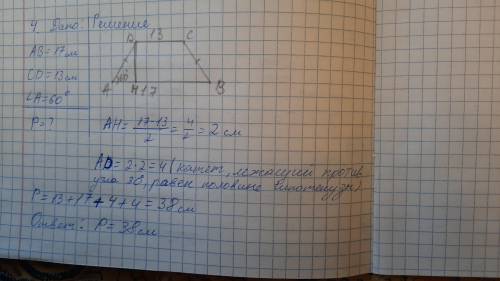 4. Дано: Решение
AB=17см
CD=13см
∠A=60°
P=?
D 13 C
60°
A H 17 B
AH= 17-13/2 = 4/2 = 2 см
AD=2·2=4 (катет, лежащий против
угла 30, равен половине гипотенузы)
P=13+17+4+4=38см
Ответ: P=38см